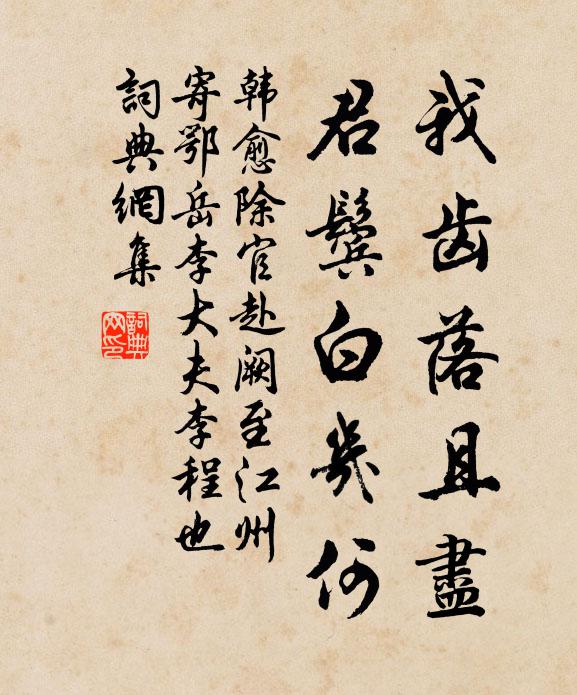 我齿落且盡
君鬓白幾何
韩愈除官赴阙至江州
寄鄂岳李大夫李程也
詞典網集
詞典網印